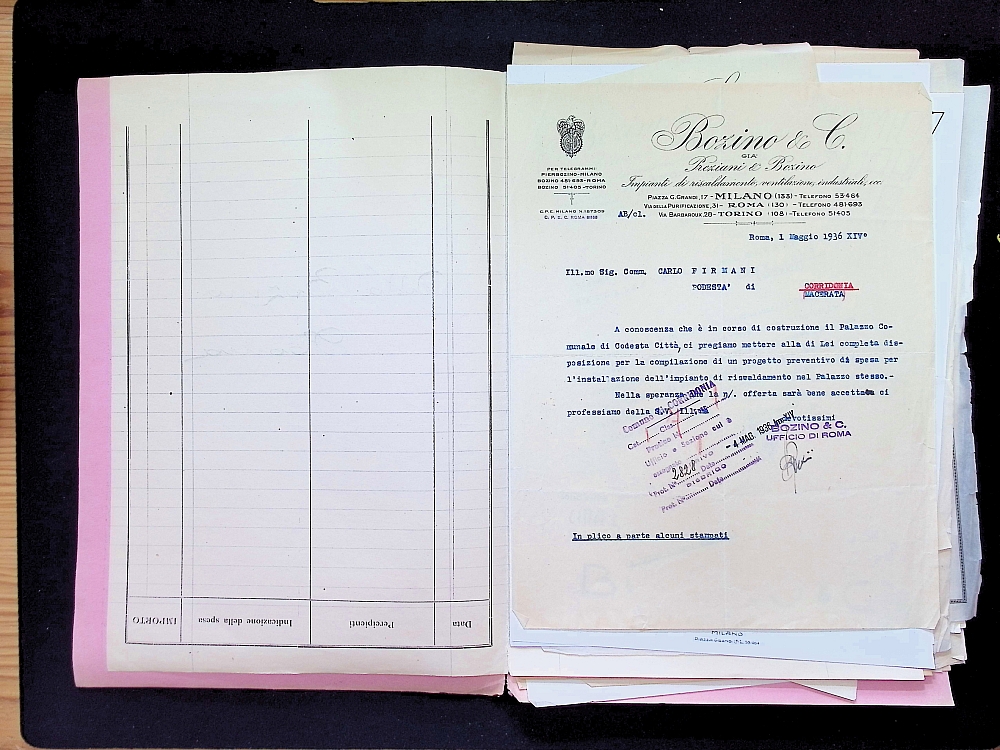 IMPORTO
Indicazione della spesa
Percipienti
Data
Bozino & C.
GIÀ
Preziani & Bozino
Impianti di riscaldamento, ventilazione, industriali, ecc.
PER TELEGRAMMI:
PIERBOZINO-MILANO
BOZINO 481·693-ROMA
BOZINO 51·405-TORINO
C.P.E. MILANO N.
C. P. E. C. ROMA
PIAZZA G. GRANDI, 17 - MILANO (133) - TELEFONO 53·464
VIA DELLA PURIFICAZIONE, 31 - ROMA (130) - TELEFONO 481·693
AB/cl. VIA BARBAROUX 28 - TORINO (108) - TELEFONO 51·405
Roma, 1 Maggio 1936 XIV°
Ill.mo Sig. Comm. CARLO F I R M A N I
PODESTA' di CORRIDONIA
(MACERATA)
A conoscenza che è in corso di costruzione il Palazzo Co-
munale di Codesta Città, ci pregiamo mettere alla di Lei completa dis-
posizione per la compilazione di un progetto preventivo di spesa per
l'installazione dell'impianto di riscaldamento nel Palazzo stesso.-
Nella speranza che la n/. offerta sarà bene accettata ci
professiamo della S.V. Ill.ma
Devotissimi
BOZINO & C.
UFFICIO DI ROMA
Comune di CORRIDONIA
Cat. Clas.
Pratica N.
Ufficio e Sezione cui è
assegnato
ARRIVO - 4 MAG. 1936 Anno XIV
Prot. N° 2828 Data
DISBRIGO
Prot. N° Data
In plico a parte alcuni stampati
MILANO